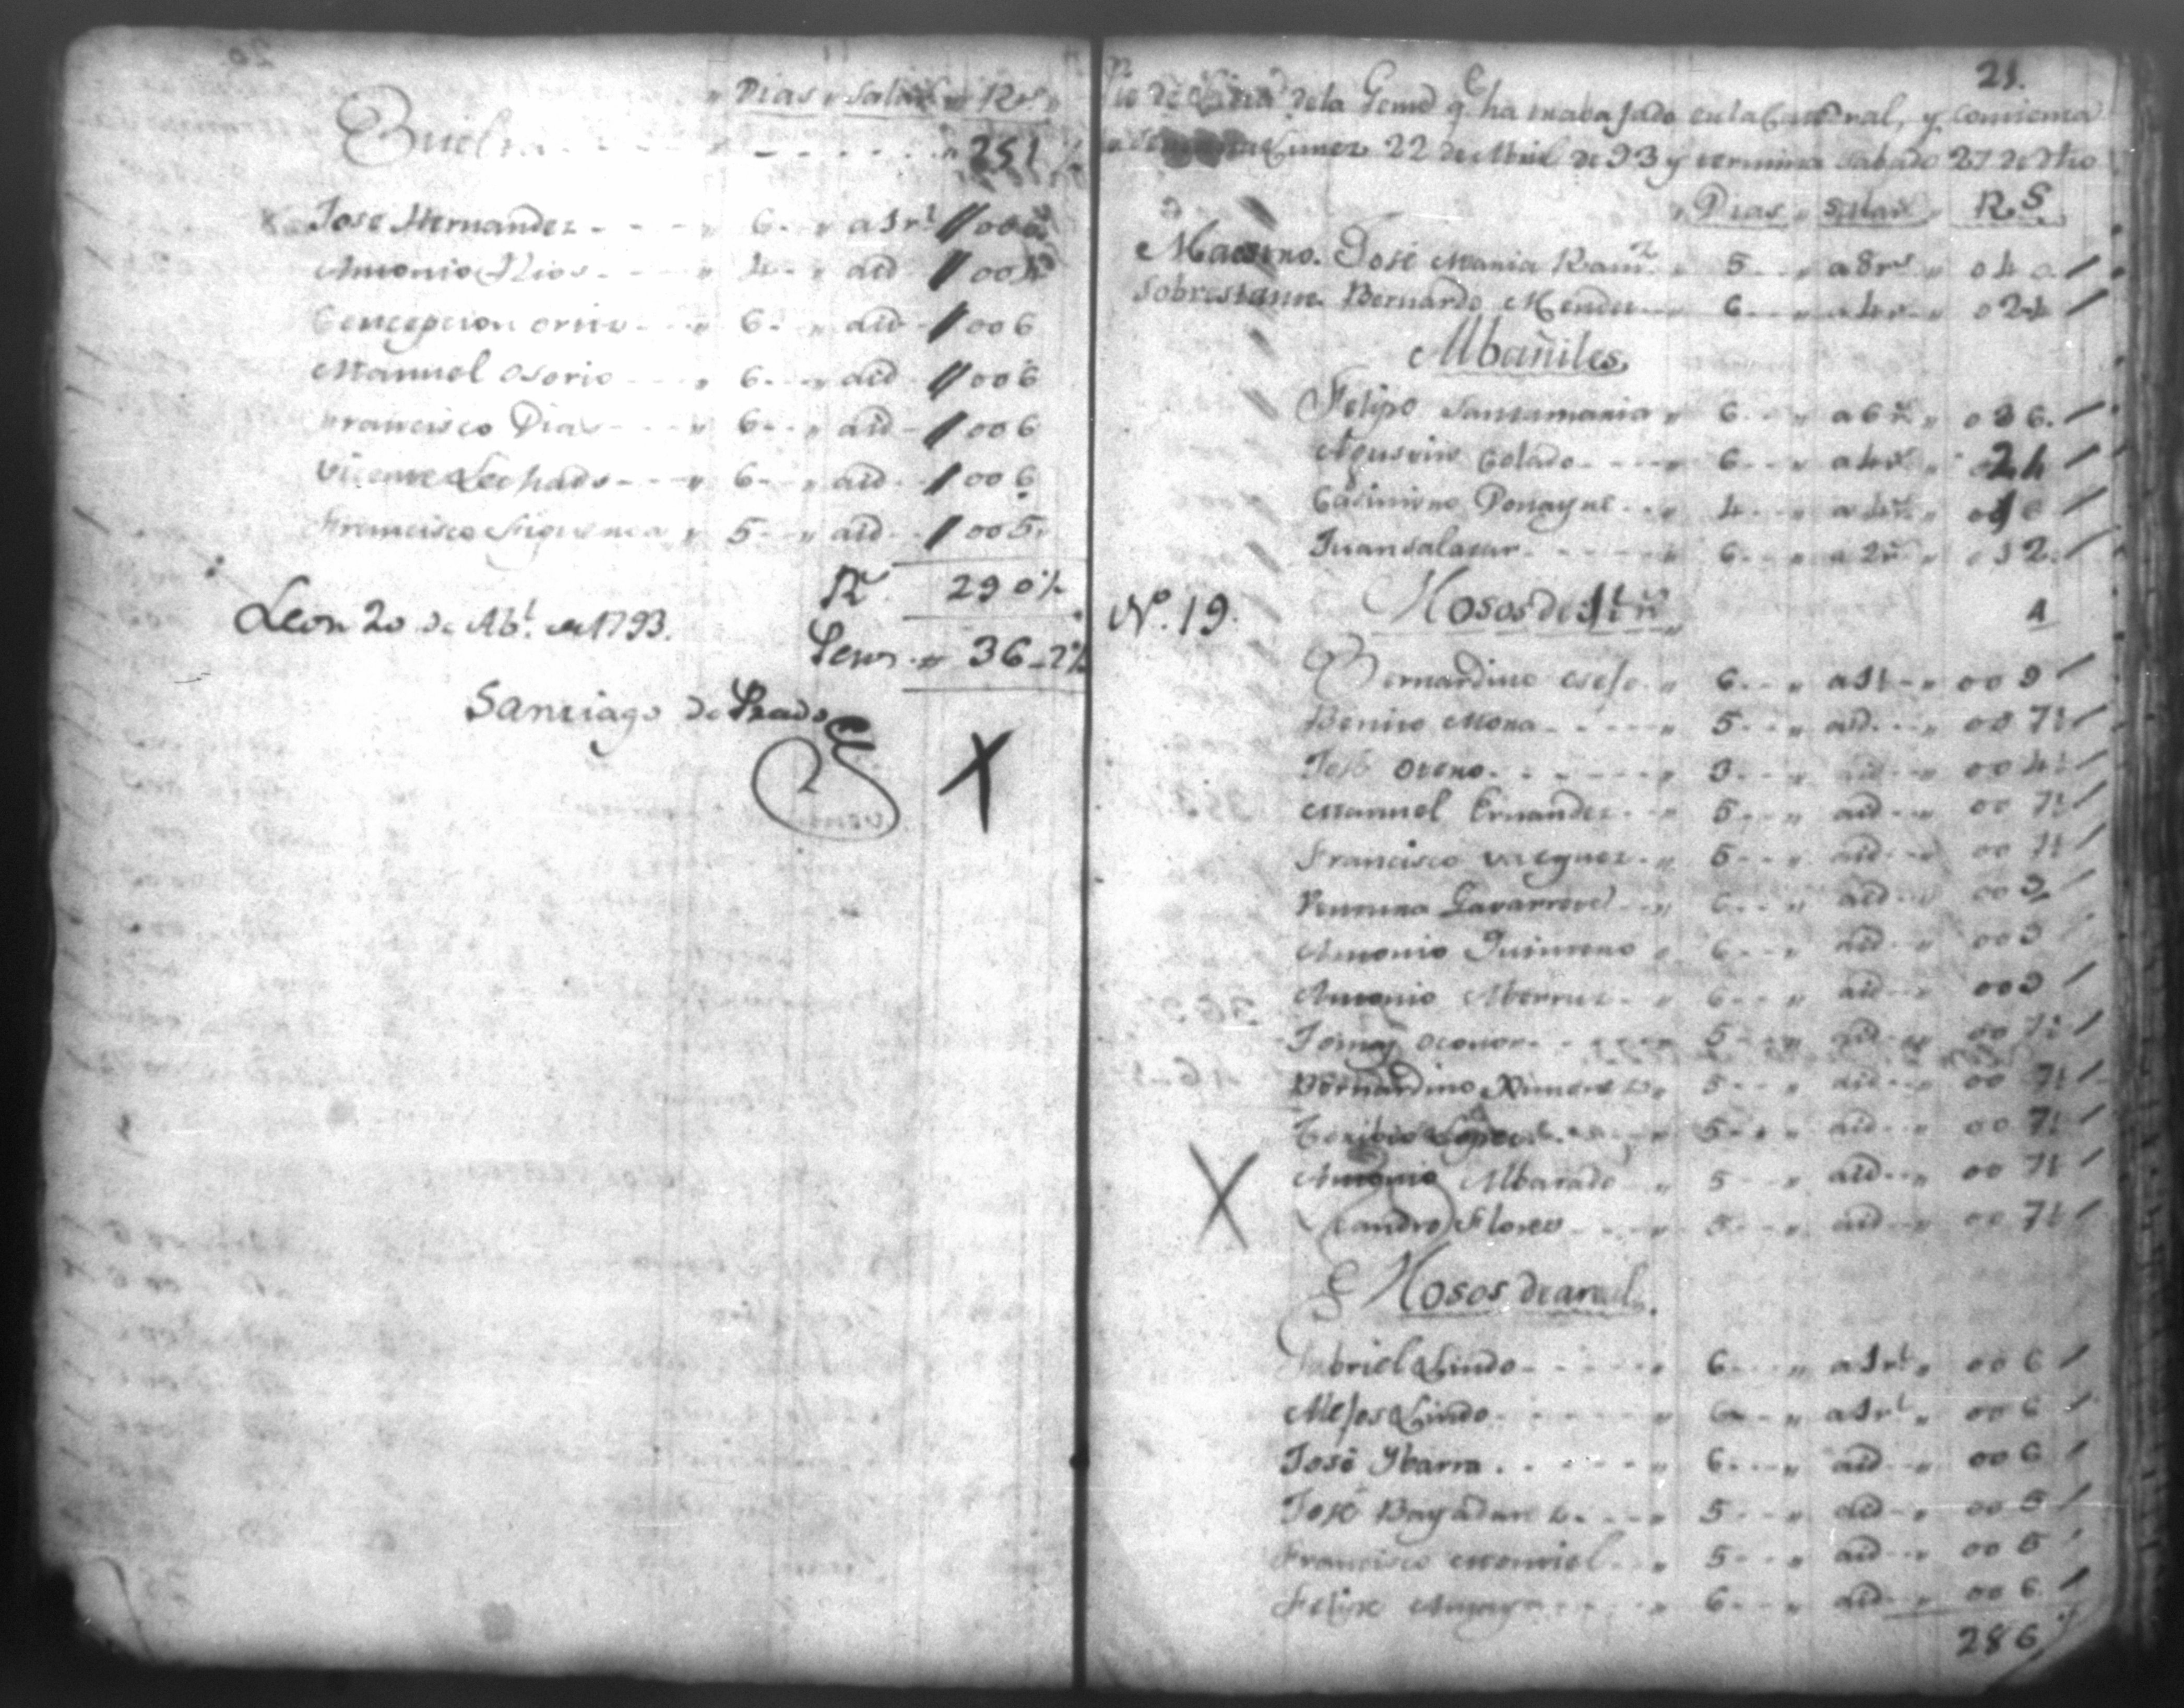 Dias Salar Rs
Buelta 251 ½
Jose Hernandez 6 a 1 rl 006
Antonio Rios 4 a id 004
Concepcion 6 a id 006
Manuel Osorio 6 a id 006
Francisco Dias 6 a id 006
Vicente Lechado 6 a id 006
Francisco Siguenza 5 a id 005
Rs 290 ½
Leon 20 de Abl. de 1793.
36-2 ½
Santiago de Prado
21.
de la Gente qe. ha trabajado en la Catedral, y comienza
Lunes 22 de Abril de 93 y termina Sabado 27 de dho
Dias Salar Rs
Maestro. José Maria Ramz. 5 a 8 rs 040
Sobrestante Bernardo Mendez 6 a 4 rs 024
Albañiles
Felipe Santamaria 6 a 6 rs 036.
Agustin Colado 6 a 4 rs 24
Casimiro Donayre 4 a 4 rs 016
Juan Salazar 6 a 2 rs 012.
No. 19. Mosos de 1½ rs
Bernardino 6 a 1½ 009
Benito Mora 5 a id 007½
José Otero 3 a id 004½
Manuel Ernandez 5 a id 007½
Francisco Vasquez 5 a id 007½
Ventura Gavarrete 6 a id 009
Antonio Quintero 6 a id 009
Antonio 6 a id 009
Tomas Oconor 5 a id 007½
Bernardino Ximenez 5 a id 007½
Toribio Lopez 5 a id 007½
Antonio Albarado 5 a id 007½
Leandro Flores 5 a id 007½
Mosos de a real
Gabriel Lindo 6 a 1 rl 006
Alejos Lindo 6 a 1 rl 006
José Ybarra 6 a id 006
José 5 a id 005
Francisco Montiel 5 a id 005
Felipe 6 a id 006
286 ½